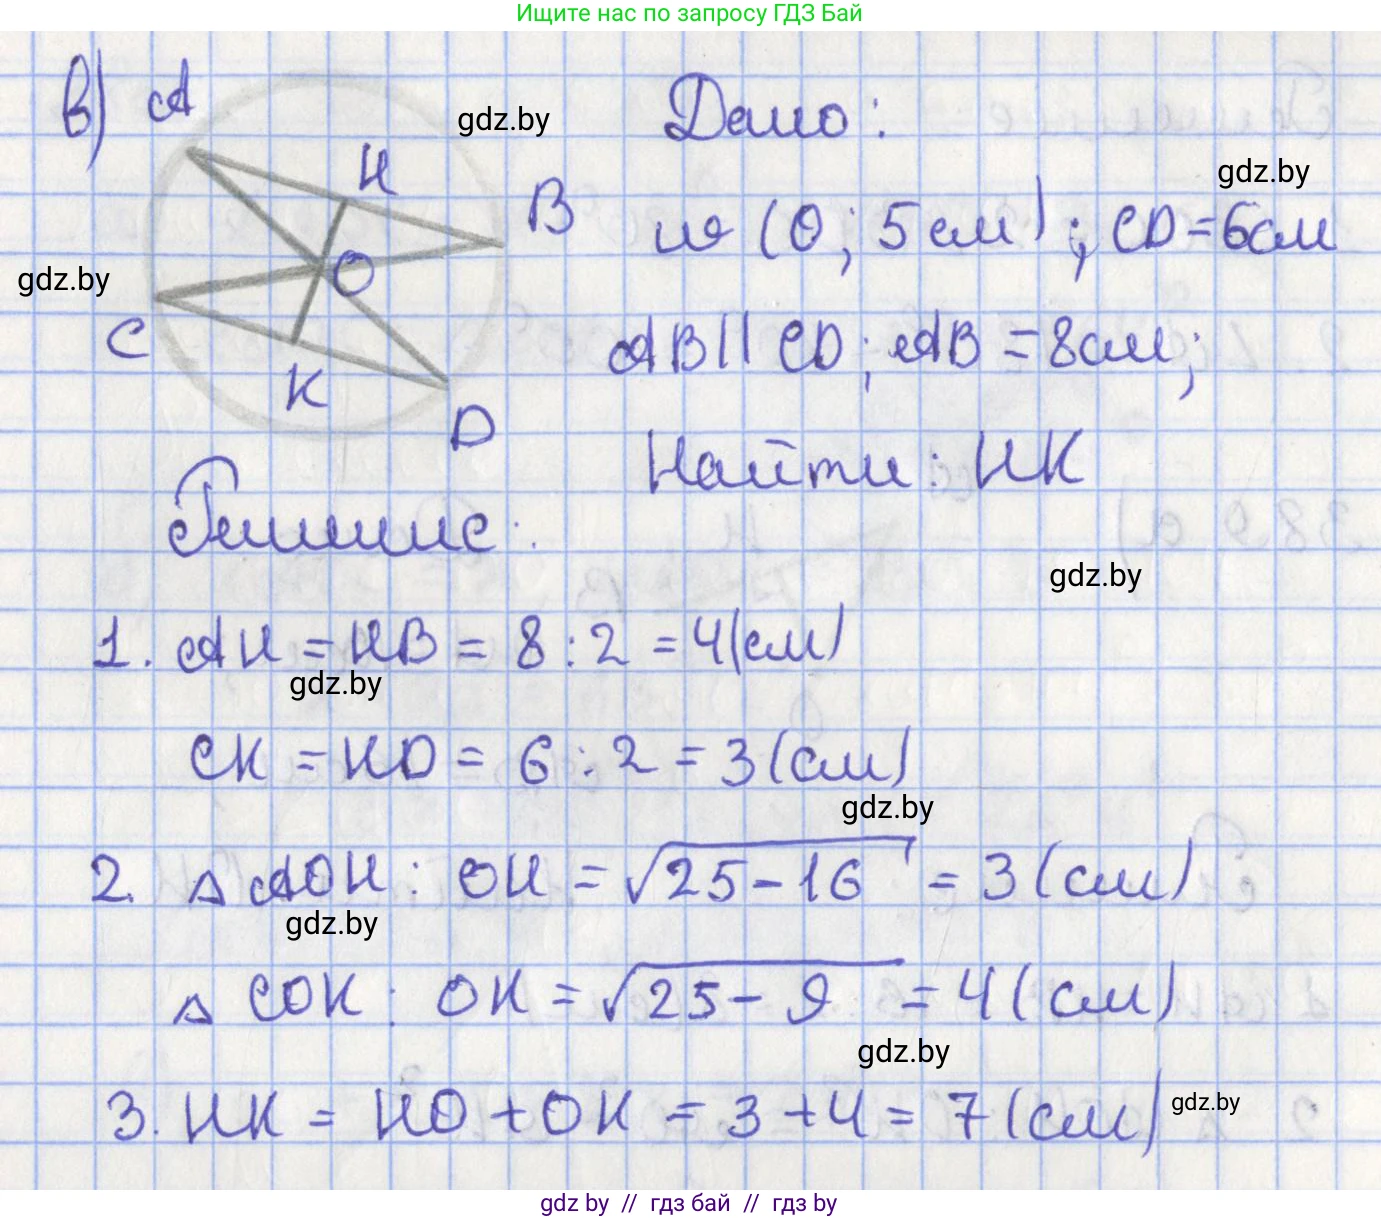 Ищите нас по запросу ГДЗ Бай
в) A
H
B
O
C
K
D
Дано:
(O; 5 см); CD = 6см
AB || CD; AB = 8см;
Найти: HK
Решение:
1. AH = HB = 8 : 2 = 4(см)
CK = KD = 6 : 2 = 3 (см)
2. △ AOH: OH = √25 - 16 = 3 (см)
△ COK: OK = √25 - 9 = 4 (см)
3. HK = HO + OK = 3 + 4 = 7 (см)
gdz.by
gdz.by
gdz.by
gdz.by
gdz.by
gdz.by
gdz.by
gdz.by
gdz.by
gdz by // гдз бай // гдз by